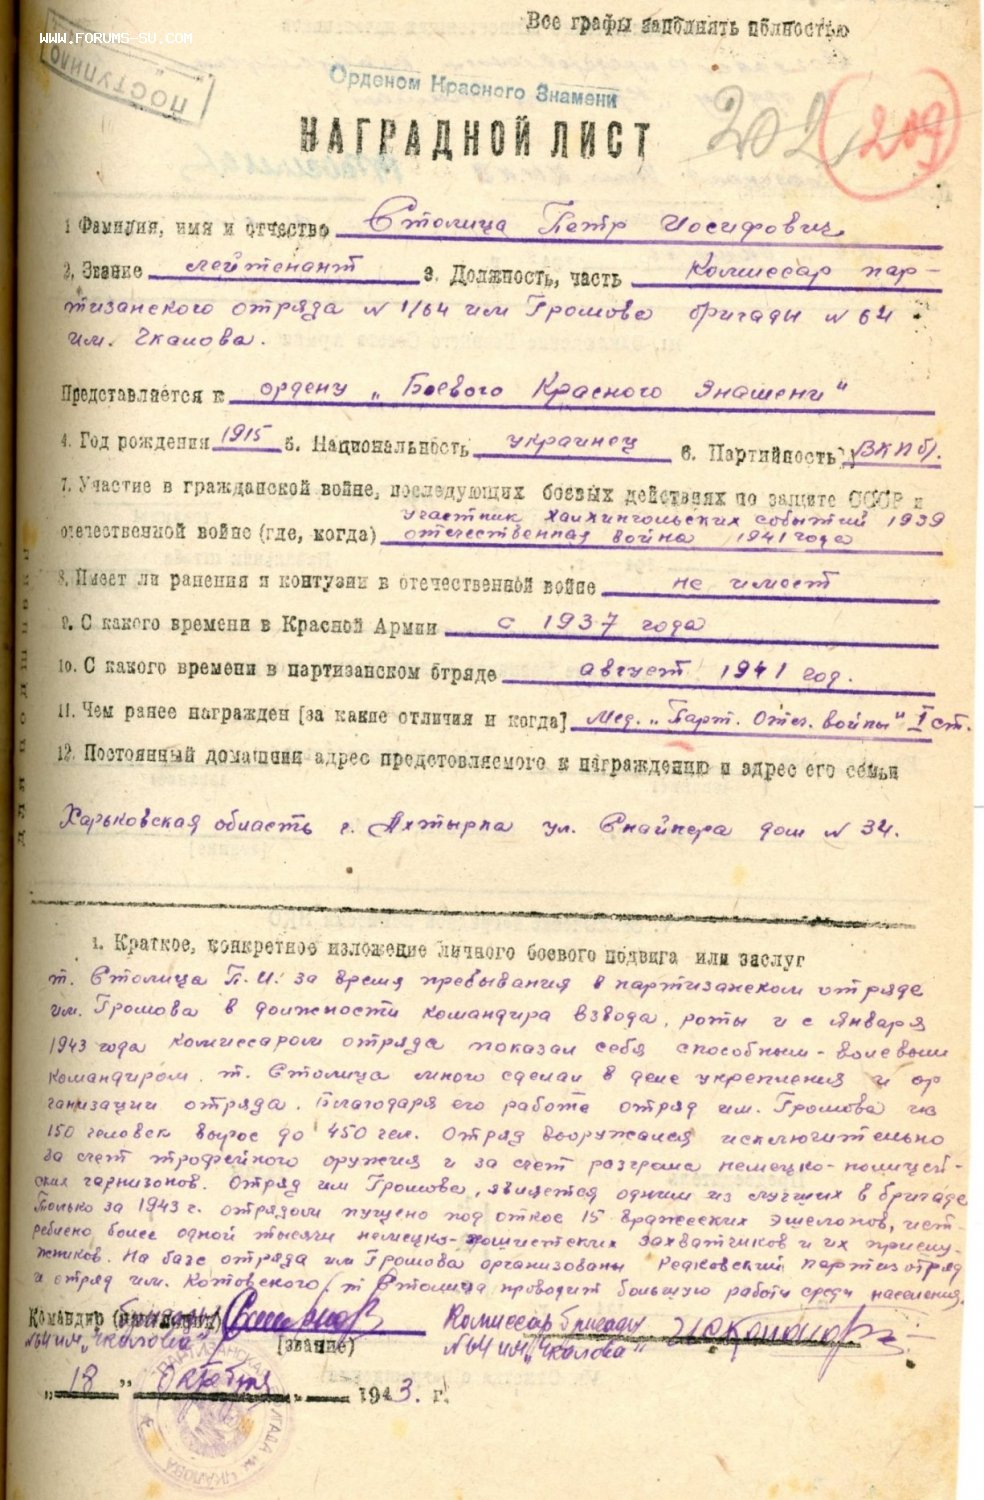 Все графы заполнять полностью
WWW.FORUMS-SU.COM
ПОСТУПИЛО
Орденом Красного Знамени
202 209
НАГРАДНОЙ ЛИСТ
1 Фамилия, имя и отчество Столица Петр Иосифович
2, Звание лейтенант 3. Должность, часть Комиссар пар-
тизанского отряда N 1/64 им Громова бригады N 64
им. Чкалова.
Представляется к ордену „Боевого Красного Знамени"
4. Год рождения 1915 5. Национальность украинец 6. Партийность ВКП б).
7. Участие в гражданской войне, последующих боевых действиях по защите СССР и
участник халхингольских событий 1939
отечественной войне (где, когда) отечественная война 1941 года
8. Имеет ли ранения и контузии в отечественной войне не имеет
9. С какого времени в Красной Армии с 1937 года
10. С какого времени в партизанском отряде август 1941 год.
11. Чем ранее награжден [за какие отличия и когда] Мед. „Парт. Отеч. войны" I ст.
12. Постоянный домашний адрес предстовляемого к награждению и адрес его семьи
Харьковская область г. Ахтырка ул. Снайпера дом N 34.
1. Краткое, конкретное изложение личного боевого подвига или заслуг
т. Столица П.И. за время пребывания в партизанском отряде
им. Громова в должности командира взвода, роты и с января
1943 года комиссаром отряда показал себя способным - волевым
командиром. т. Столица много сделал в деле укрепления и ор
ганизации отряда. Благодаря его работе отряд им. Громова из
150 человек вырос до 450 чел. Отряд вооружался исключительно
за счет трофейного оружия и за счет разгрома немецко-полицей-
ских гарнизонов. Отряд им Громова, является одним из лучших в бригаде
Только за 1943 г. отрядом пущено под откос 15 вражеских эшелонов, ист-
реблено более одной тысячи немецко-фашистских захватчиков и их прислу-
жников. На базе отряда им Громова организованы Редковский партиз отряд
и отряд им. Котовского. т Столица проводит большую работу среди населения.
Командир бригады Комиссар бригады
N 64 им. „Чкалова" [звание] N 64 им „Чкалова"
„18" Октября 1943. г.
ПАРТИЗАНСКАЯ БРИГАДА им. ЧКАЛОВА